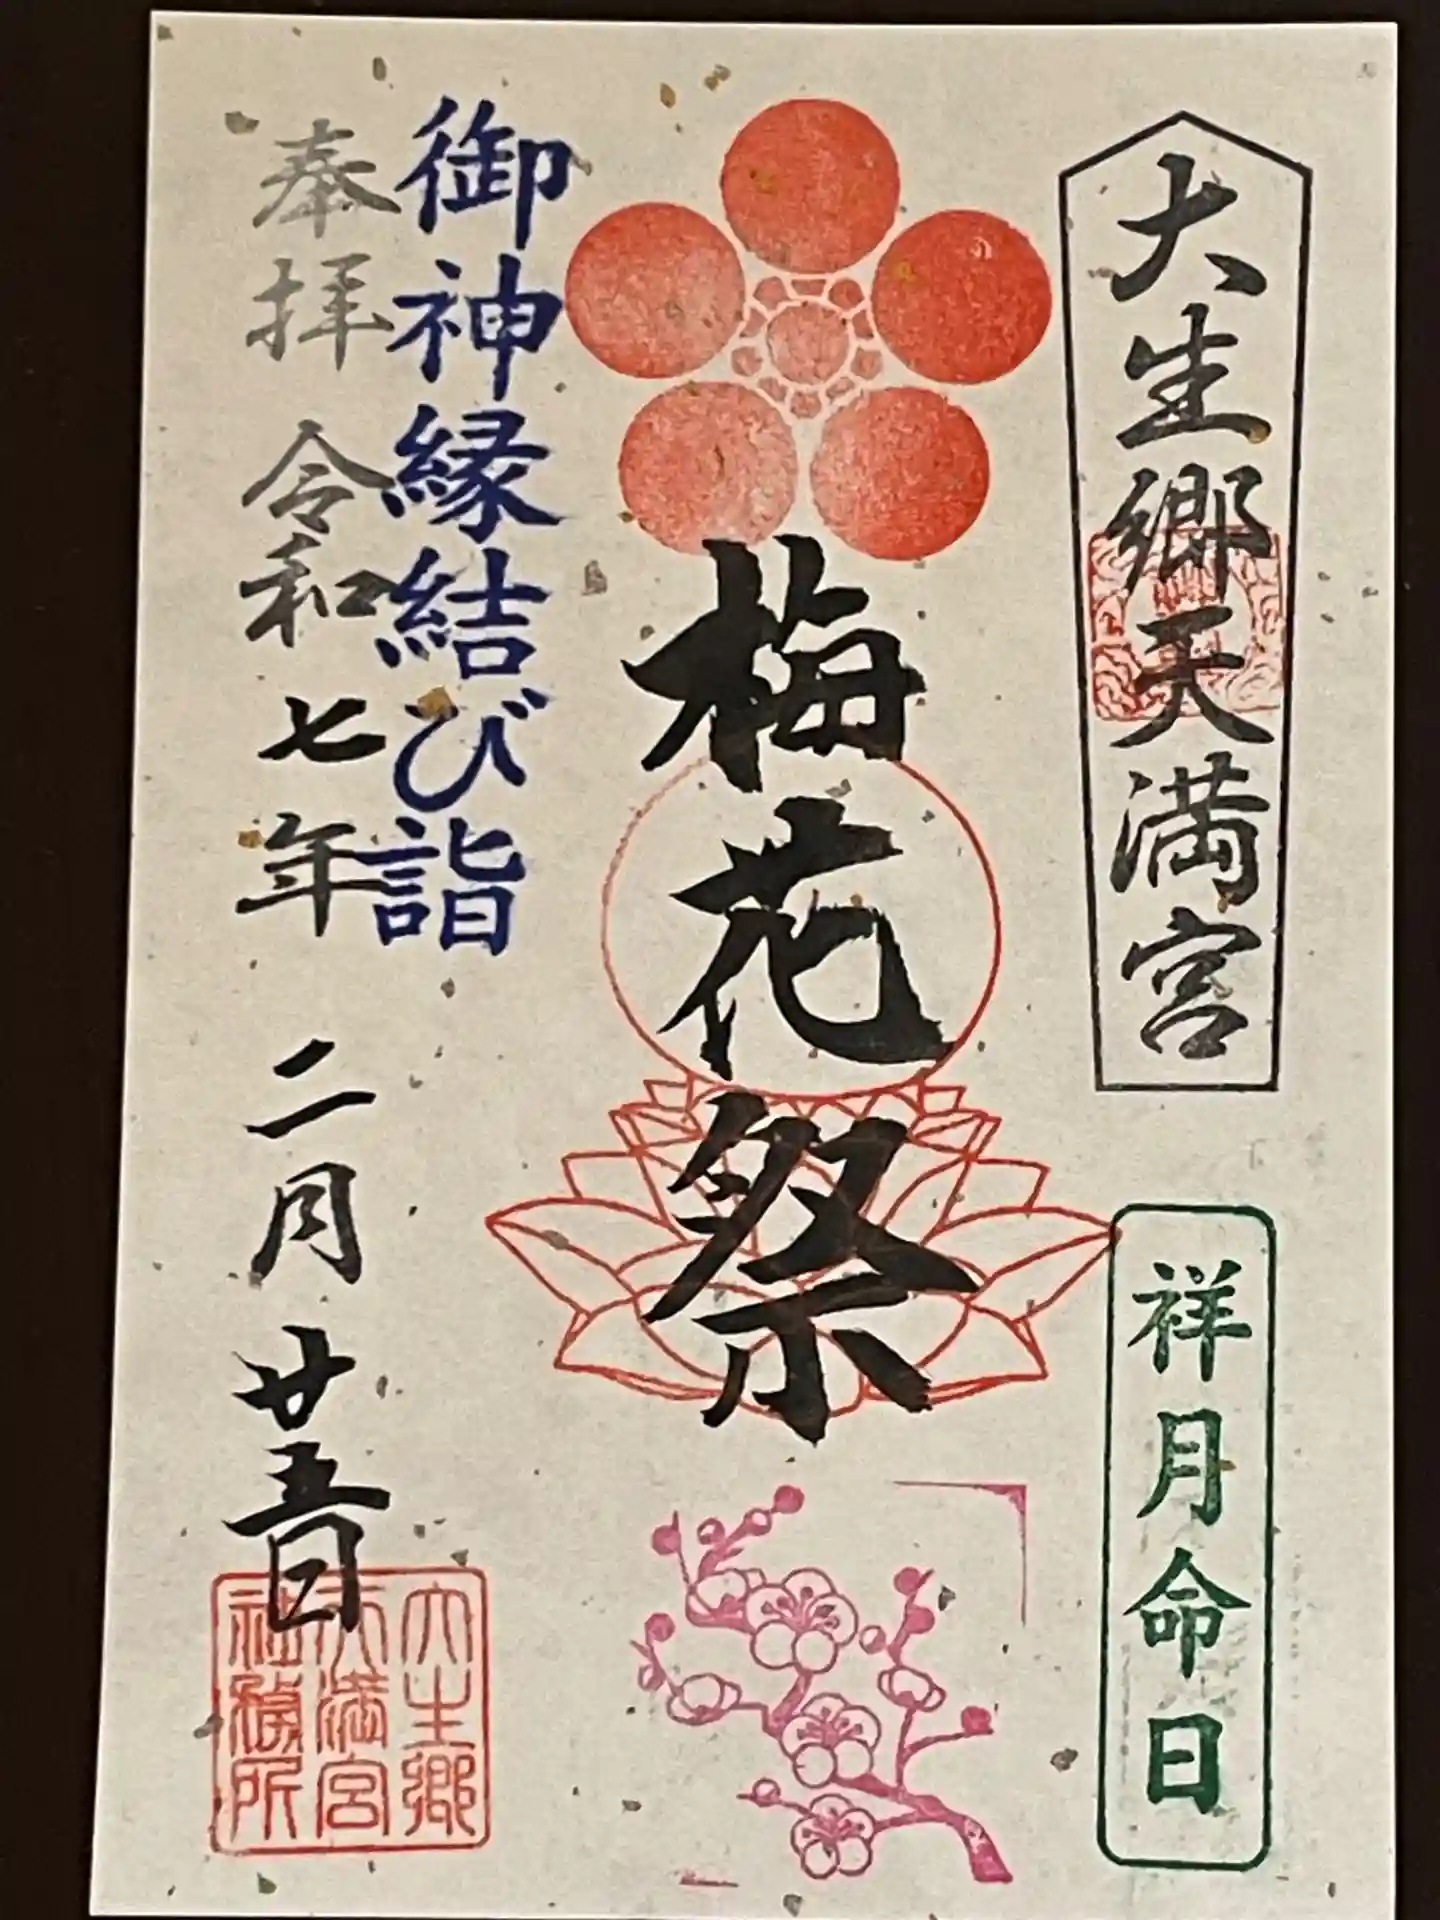 大生郷天満宮
祥月命日
梅花祭
御神縁結び詣
奉拝 令和七年 二月廿五日
大生郷
天満宮
社務所